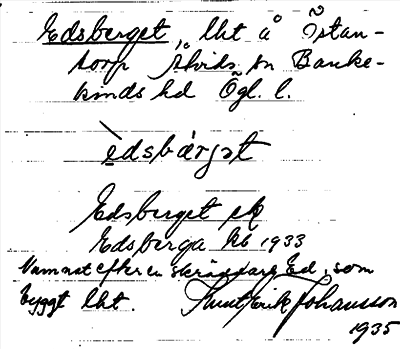 Edsberget, lht å Östan-
torp Åtvids sn Banke-
kinds hd Ögl. l.
èdsbærjət
Edsberget ek
Edsberga kb 1933
Namnat efter en skräddare Ed, som
byggt lht. Knut Erik Johansson
1935